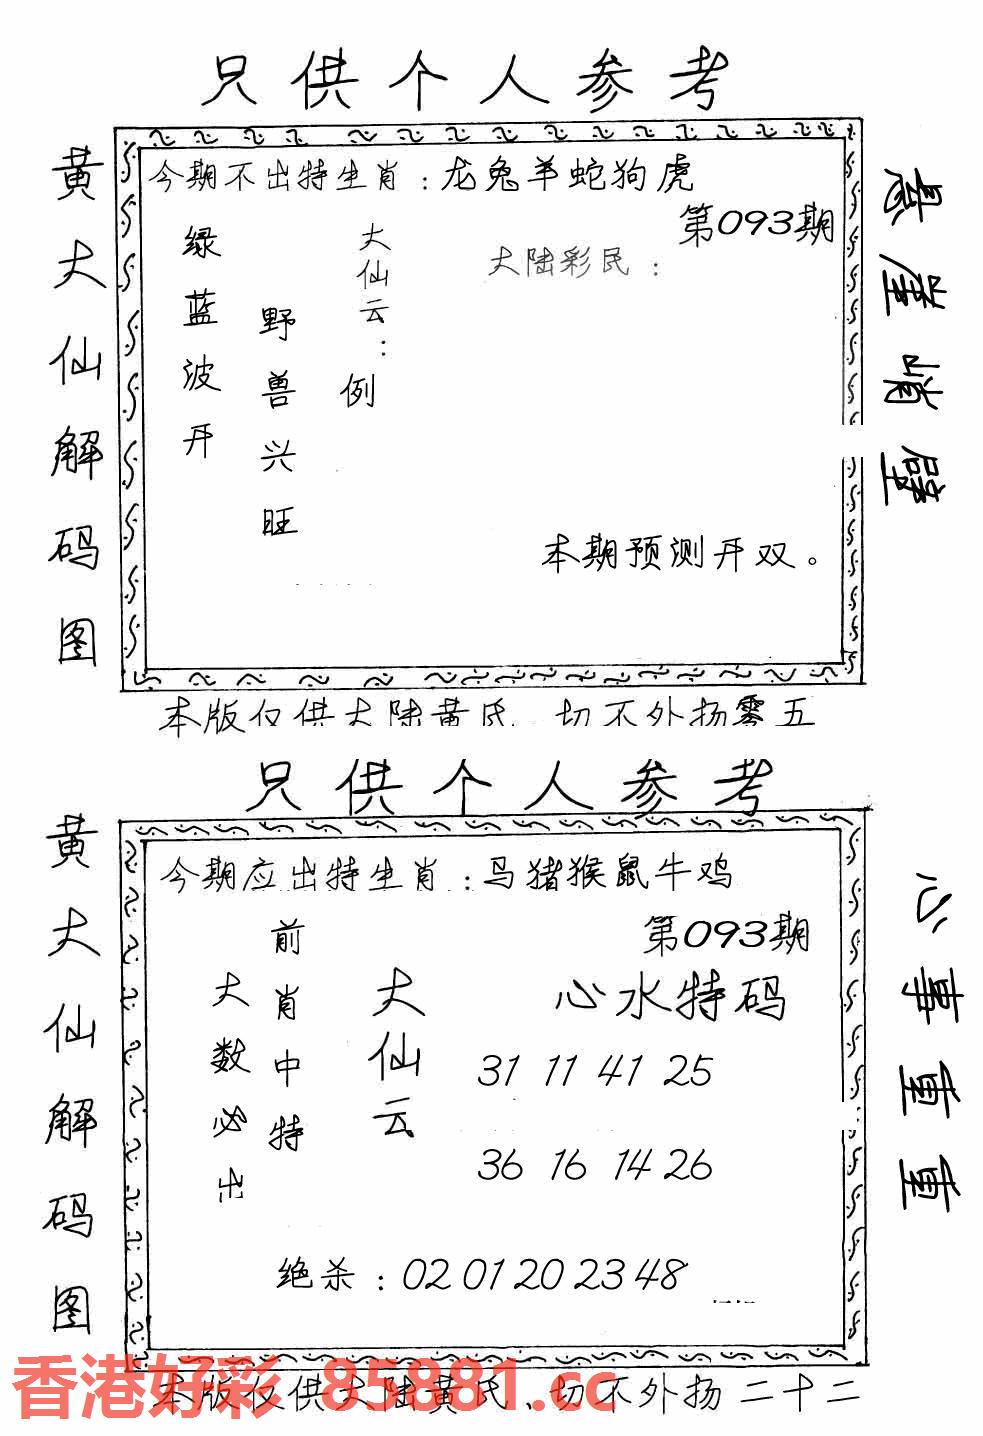 只供个人参考
黄大仙解码图
今期不出特生肖：龙兔羊蛇狗虎
第093期
绿蓝波开
野兽兴旺
大仙云：
例
大陆彩民：
本期预测开双。
悬崖峭壁
本版仅供大陆黄氏、切不外扬零五
只供个人参考
黄大仙解码图
今期应出特生肖：马猪猴鼠牛鸡
第093期
前肖中特
大数必出
大仙云
心水特码
31 11 41 25
36 16 14 26
绝杀：02 01 20 23 48
心事重重
香港好彩 85881.cc
本版仅供大陆黄氏、切不外扬二十二